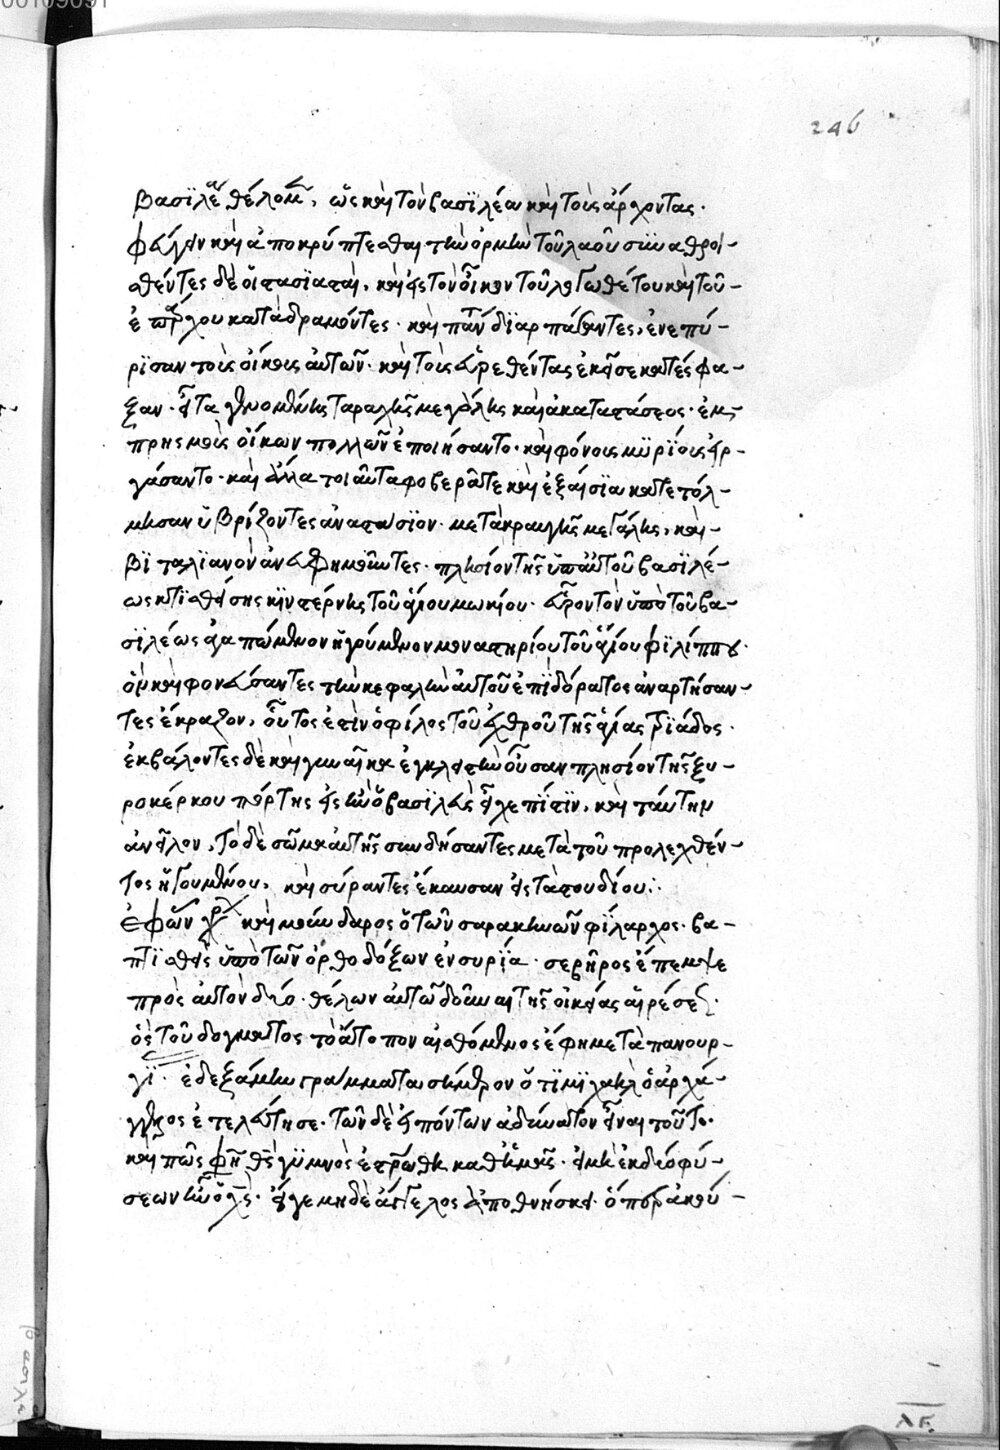 00109091
246
βασιλέα θέλομεν, ὡς καὶ τὸν βασιλέα καὶ τοὺς ἄρχοντας
φεύγειν καὶ ἀποκρύπτεσθαι τὴν ὁρμὴν τοῦ λαοῦ συναθροι-
σθέντες δὲ οἱ στασιασταὶ, καὶ εἰς τὸν οἶκον τοῦ λογοθέτου καὶ τοῦ
ἐπάρχου καταδραμόντες. καὶ πάντα διαρπάσαντες, ἐνεπύ-
ρισαν τοὺς οἴκους αὐτῶν. καὶ τοὺς εὑρεθέντας ἐκεῖσε κατέσφα-
ξαν. εἶτα γενομένης ταραχῆς μεγάλης καὶ ἀκαταστάσεως. ἐμ-
πρησμοὺς οἴκων πολλῶν ἐποιήσαντο. καὶ φόνους μυρίους εἰρ-
γάσαντο. καὶ ἄλλα τοιαῦτα φοβερά τε καὶ ἐξαίσια κατετόλ-
μησαν ὑβρίζοντες ἀναστάσιον. μετὰ κραυγῆς μεγάλης, καὶ
βιταλιανὸν ἀνευφημοῦντες. πλησίον τῆς ὑπ' αὐτοῦ βασιλέ-
ως κτισθείσης κινστέρνης τοῦ ἁγίου μωκίου. εὗρον τὸν ὑπὸ τοῦ βα-
σιλέως ἀγαπώμενον ἡγούμενον μοναστηρίου τοῦ ἁγίου φιλίππου.
ὃν καὶ φονεύσαντες τὴν κεφαλὴν αὐτοῦ ἐπὶ δόρατος ἀναρτήσαν-
τες ἔκραζον, οὗτος ἐστὶν ὁ φίλος τοῦ ἐχθροῦ τῆς ἁγίας τριάδος.
ἐκβάλοντες δὲ καὶ γυναῖκα ἐγκλειστὴν οὖσαν πλησίον τῆς ξυ-
ροκέρκου πόρτης εἰς ἣν ὁ βασιλεὺς εἶχε πίστιν, καὶ ταύτην
ἀνεῖλον, τὸ δὲ σῶμα αὐτῆς συνδήσαντες μετὰ τοῦ προλεχθέν-
τος ἡγουμένου, καὶ σύραντες ἔκαυσαν εἰς τὰ στουδίου.
καὶ μούνδαρος ὁ τῶν σαρακηνῶν φίλαρχος. βα-
πτισθεὶς ὑπὸ τῶν ὀρθοδόξων ἐν συρία. σεβῆρος ἔπεμψε
πρὸς αὐτὸν δύο. θέλων αὐτῶ δοῦναι τῆς οἰκείας αἱρέσεως.
ὃς τοῦ δογματος τὸ ἄτοπον αἰσθόμενος ἔφη μετὰ πανουρ-
γί. ἐδεξάμην γράμματα σήμερον ὅτι μιχαὴλ ὁ ἀρχά-
γγελος ἐτελεύτησε. τῶν δὲ εἰπόντων ἀδύνατον εἶναι τοῦτο.
καὶ πῶς φησὶ θεὸς γυμνὸς ἐσταυρώθη καθ' ὑμᾶς. εἰ μὴ ἐκ δύο φύ-
σεων ἦν ὁ χριστός. εἴγε μηδὲ ἄγγελος ἀποθνήσκει. ὁ πορακού-
λε.